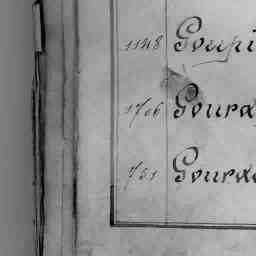 1148 Goupi
1706 Gourd
751 Gourd